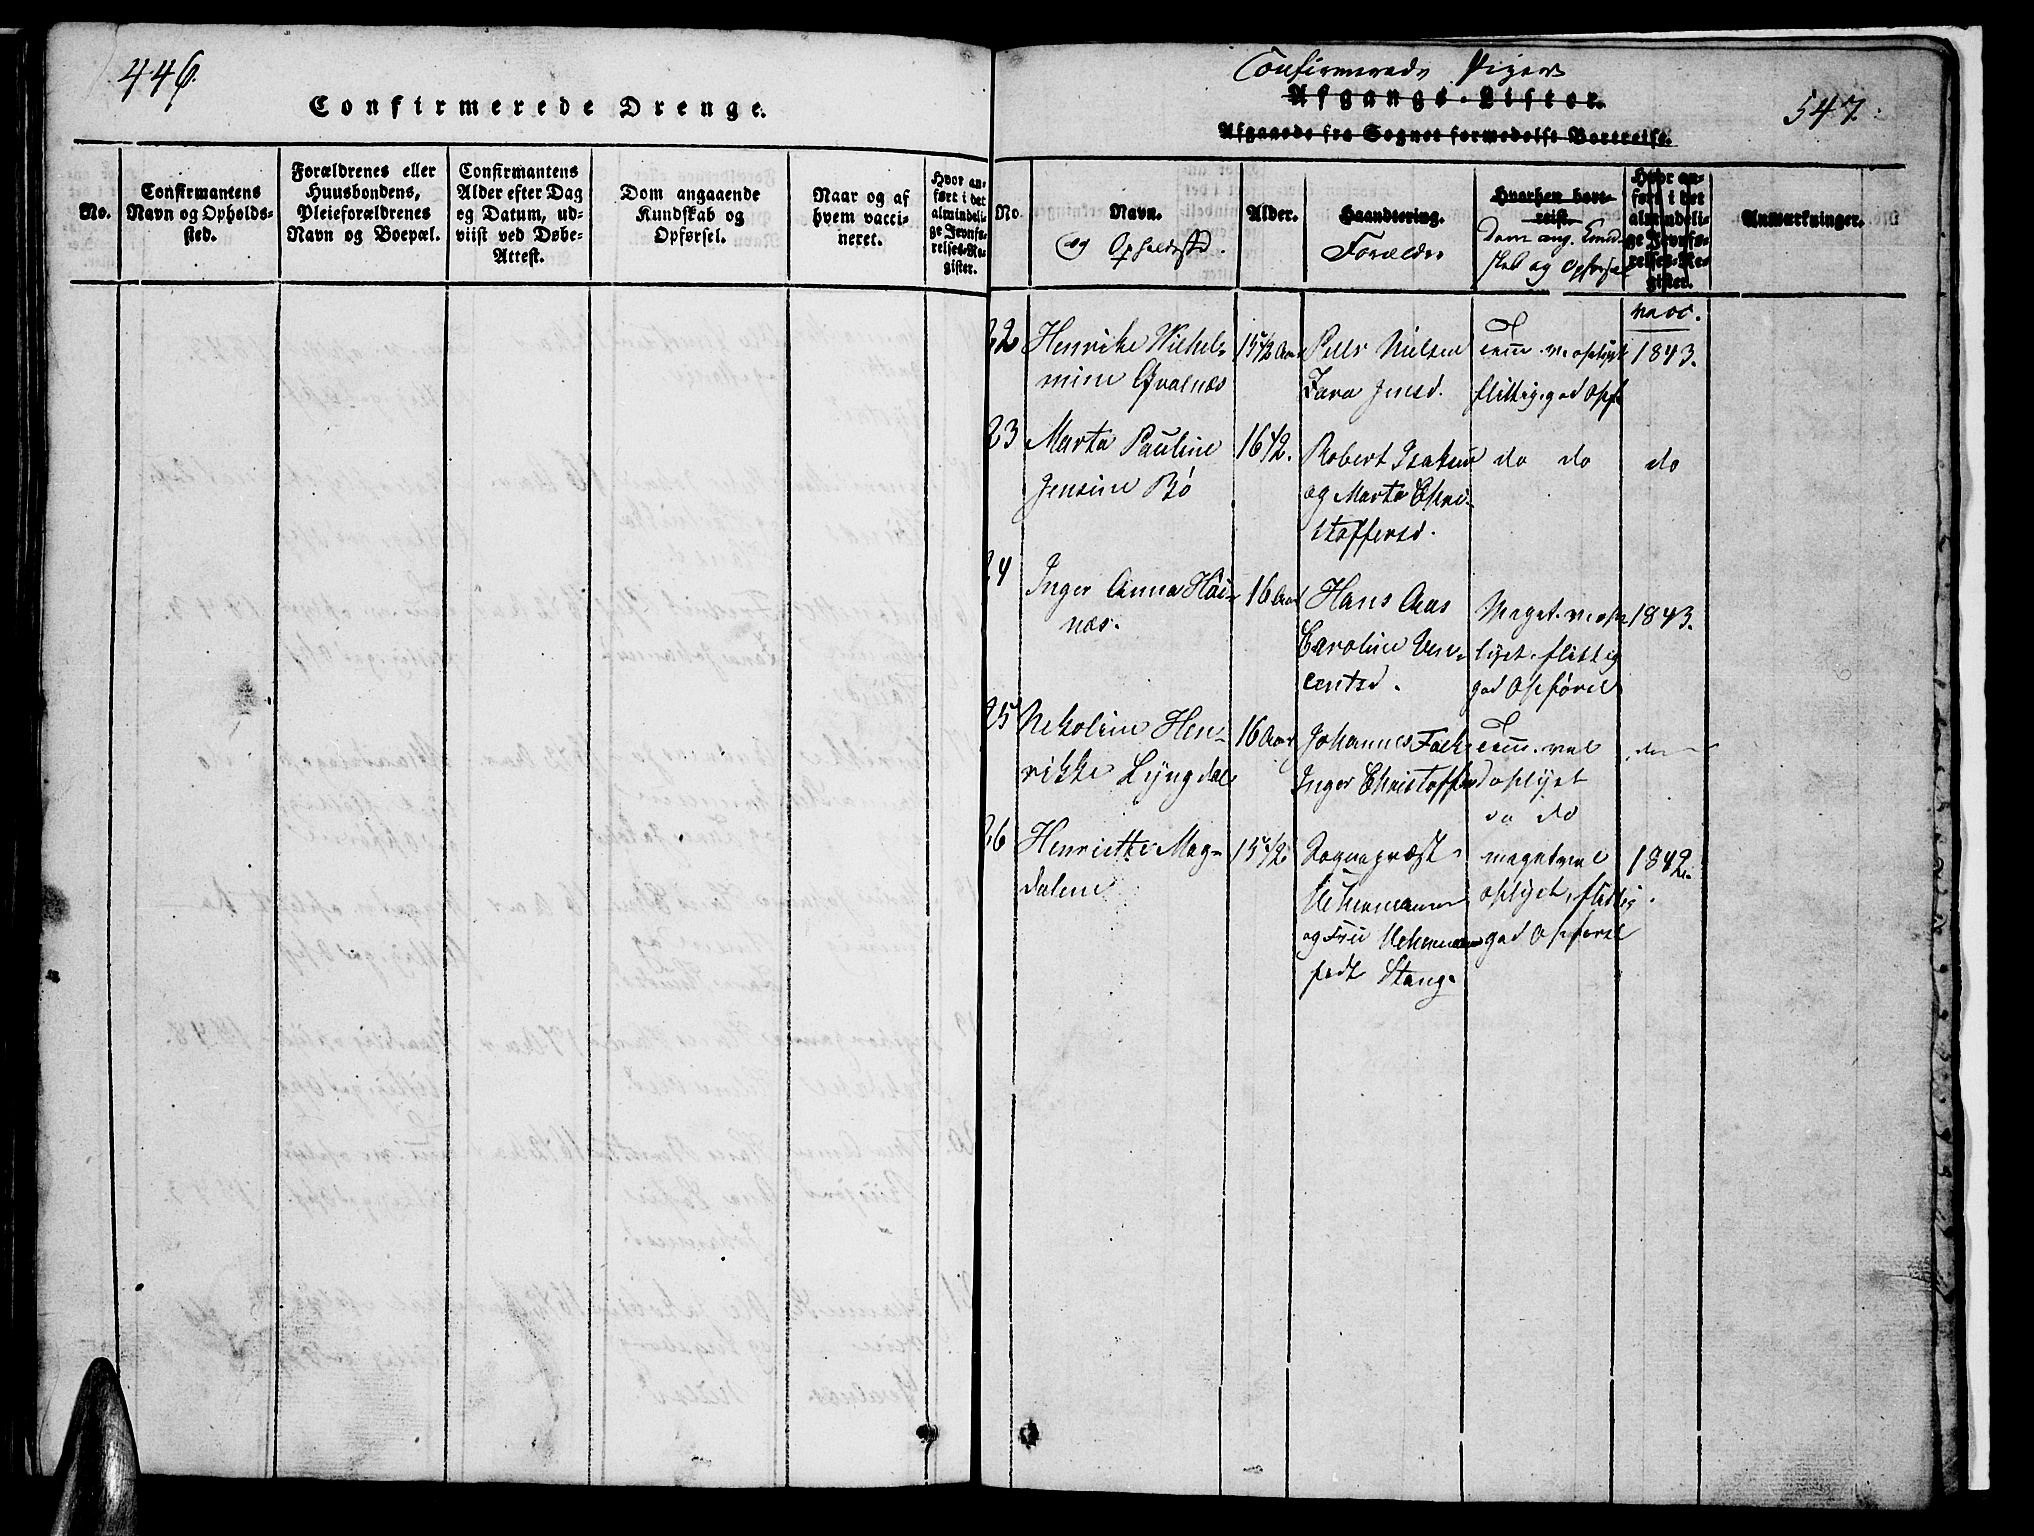 446.
Confirmerede Drenge.
No.
Confirmantens
Navn og Opholds-
sted.
Forældrenes eller
Huusbondens,
Pleieforældrenes
Navn og Boepæl.
Confirmantens
Alder efter Dag
og Datum, ud-
viist ved Døbe-
Attest.
Dom angaaende
Kundskab og
Opførsel.
Naar og af
hvem vacci-
neret.
Hvor an-
ført i det
almindeli-
ge Jevnfø-
relses-Re-
gister.
Confirmerede Piger
Afgangs-Lister.
547.
Afgaaede fra Sognet formedelst Bortreise.
No.
Navn.
og Opholdssted.
Alder.
Haandtering.
Forældre
Hvorhen bort-
reist.
Dom ang. Kund-
skab og Opførsel
Hvor an-
ført i det
almindeli-
ge Jevnfø-
relses-Re-
gister.
Anmærkninger.
vacc.
22
Henrike Wilhel-
mine Qvalnæs
15 1/2 Aar
Peder Nielsen
Lava Jensd.
Tem. v. oplyst
flittig. god Opf
1843.
23
Marta Pauline
Jensine Bö
16 1/2.
Robert Isaksen
og Marta Chri-
stoffersd.
do do
do
24
Inger Anna Höi-
næs.
16 Aar
Hans Aas
Caroline Ven-
centsd.
Meget. v. op-
lyst. flittig
god Opførsel
1843.
25
Nekoline Hen-
rikke Lyngdal
16 Aar
Johannes Falk
Inger Christoffersd
Tem. vel
oplyst
do do
do
26
Henriette Mag-
dalene
15 1/2
Sognepræst
Uchermann
og Fru Uchermann
født Stang.
meget vel
oplyst, flittig.
god Opførsel
1842.